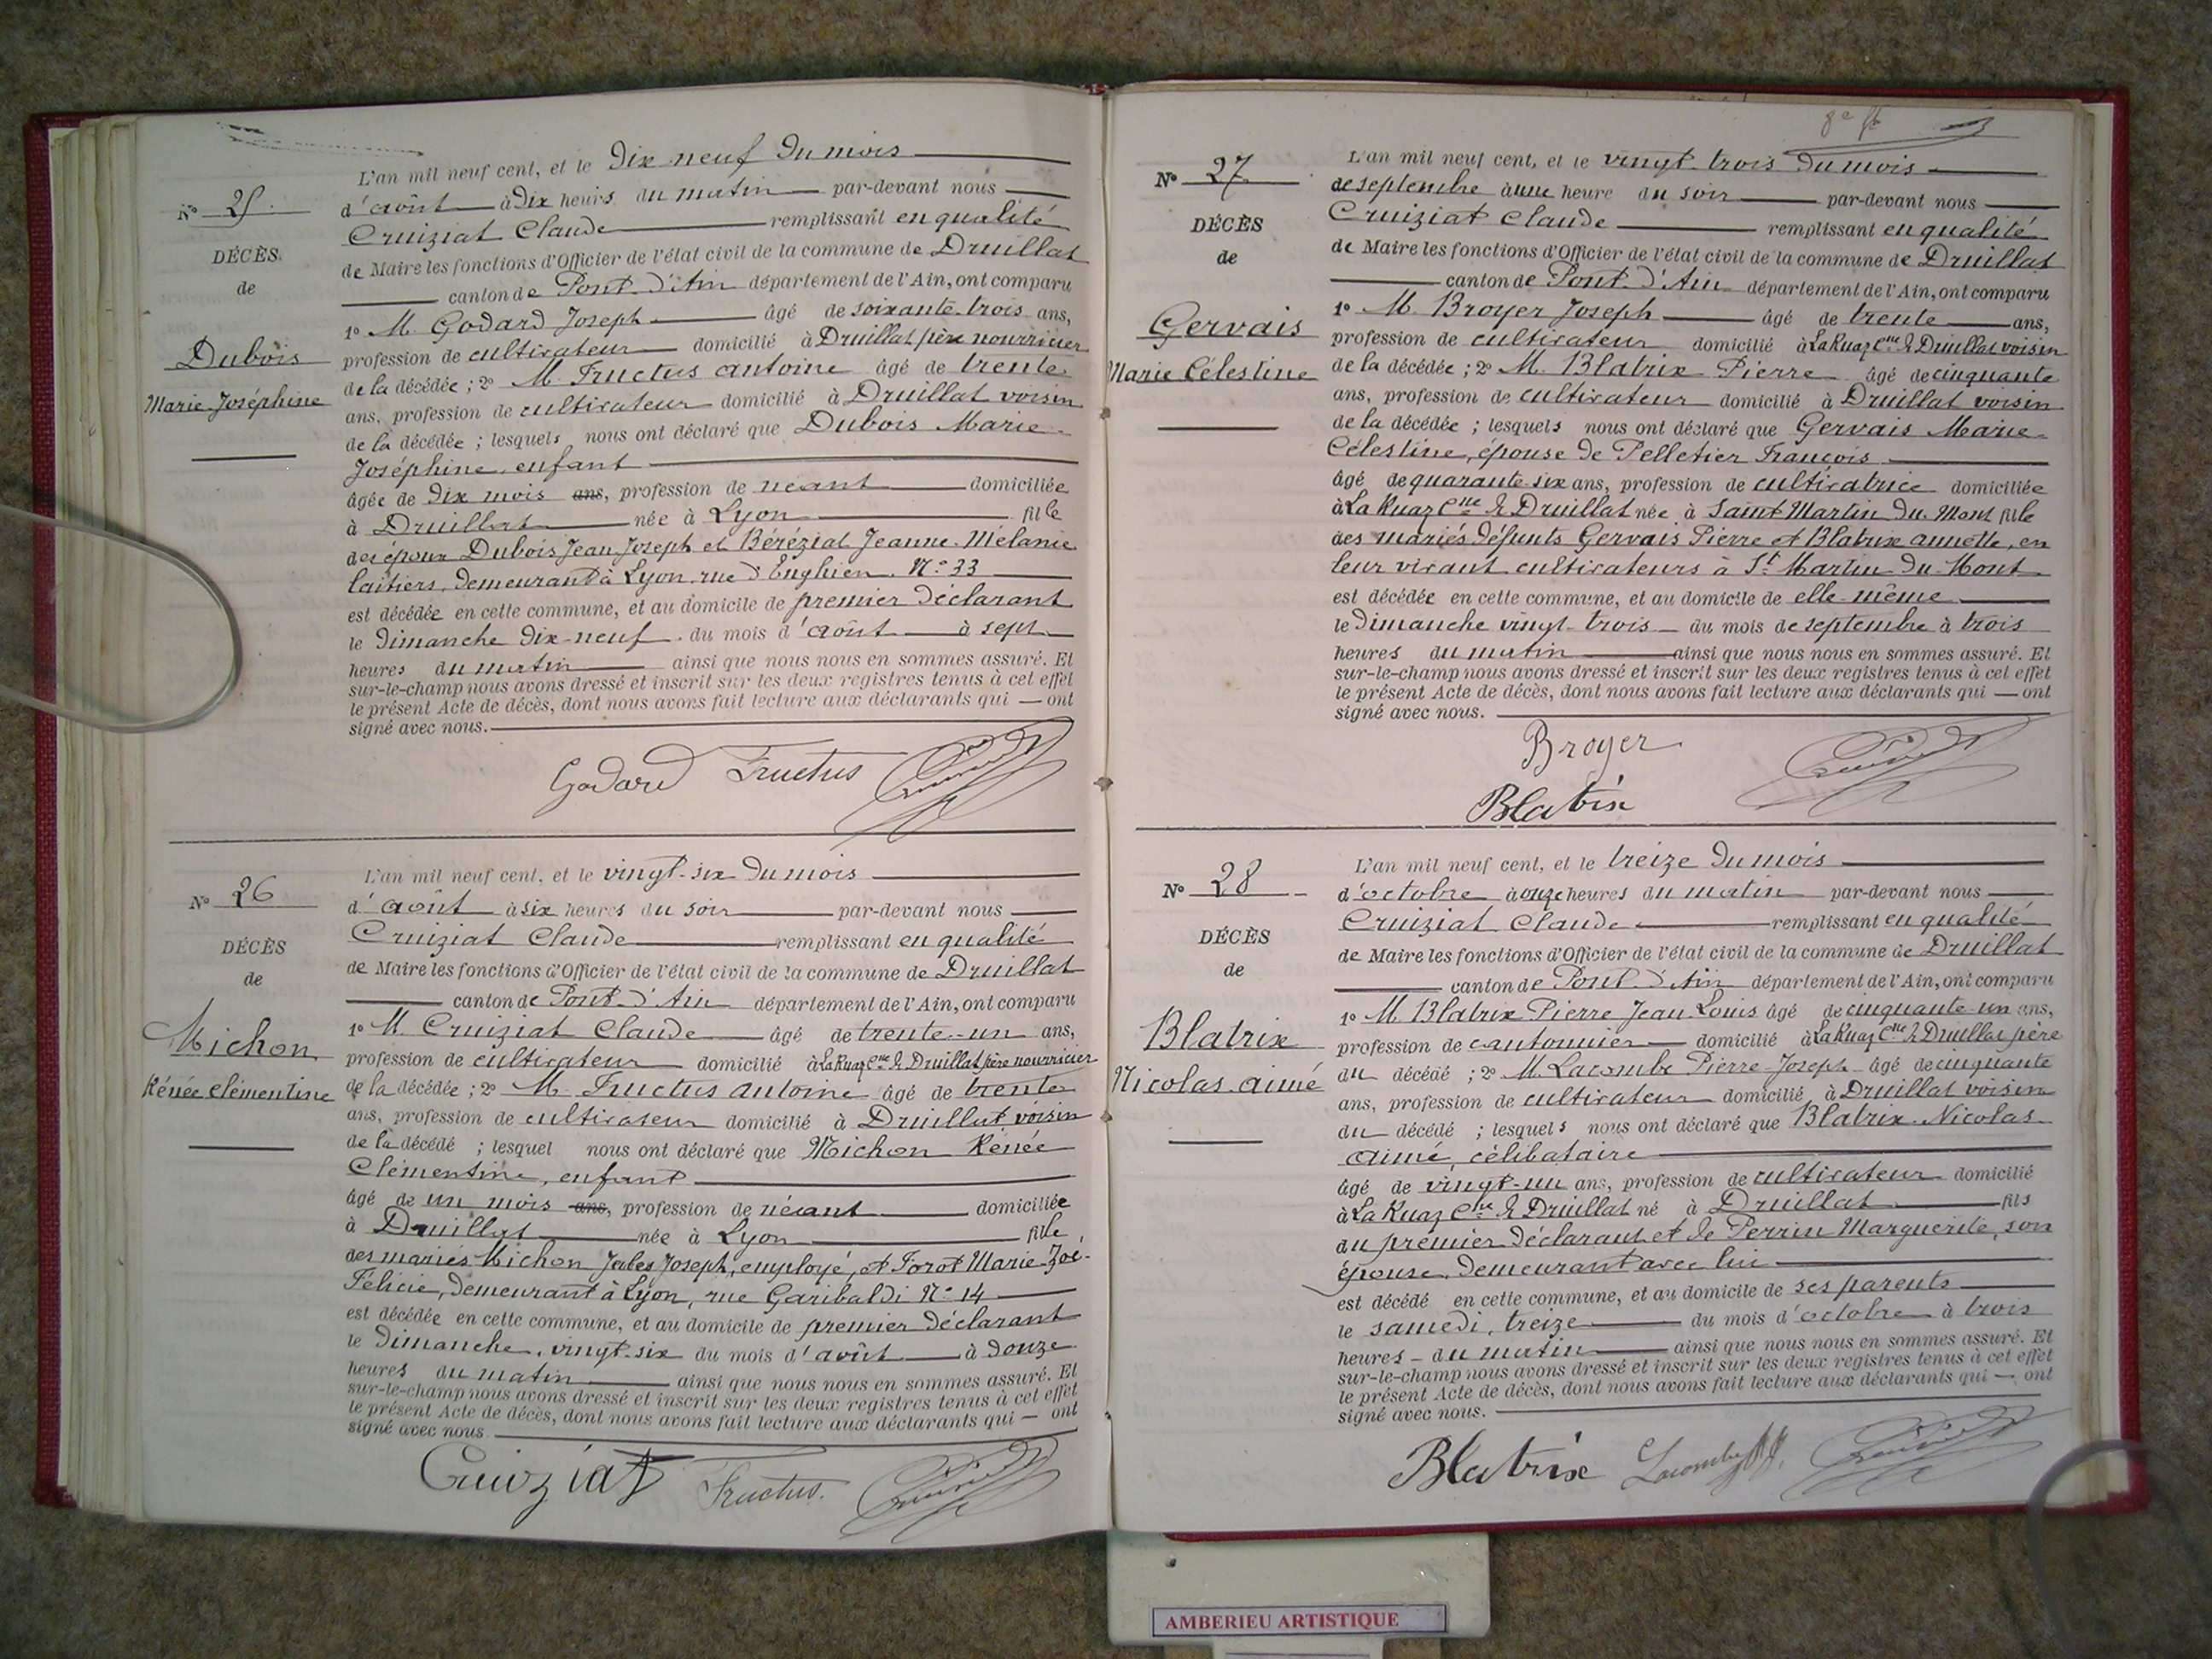 L'an mil neuf cent, et le Dix neuf du mois
N° 25.
d'août à Dix heures du matin par-devant nous
Cruiziat Claude remplissant en qualité
DÉCÈS
de Maire les fonctions d'Officier de l'état civil de la commune de Druillat
de
canton de Pont-d'Ain département de l'Ain, ont comparu
1° M. Godard Joseph âgé de soixante-trois ans,
Dubois
profession de cultivateur domicilié à Druillat père nourricier
de la décédée ; 2° M. Fructus antoine âgé de trente
Marie-Joséphine
ans, profession de cultivateur domicilié à Druillat voisin
de la décédée ; lesquels nous ont déclaré que Dubois Marie-
Joséphine, enfant
âgée de dix mois ans, profession de néant domiciliée
à Druillat née à Lyon fille
des époux Dubois Jean-Joseph et Béréziat Jeanne-Mélanie
laitiers, demeurant à Lyon, rue d'Enghien, N° 33
est décédée en cette commune, et au domicile de premier déclarant
le Dimanche dix-neuf du mois d'août à sept
heures du matin ainsi que nous nous en sommes assuré. Et
sur-le-champ nous avons dressé et inscrit sur les deux registres tenus à cet effet
le présent Acte de décès, dont nous avons fait lecture aux déclarants qui — ont
signé avec nous.
Godard Fructus Cruiziat
L'an mil neuf cent, et le vingt-six du mois
N° 26
d'août à six heures du soir par-devant nous
Cruiziat Claude remplissant en qualité
DÉCÈS
de Maire les fonctions d'Officier de l'état civil de la commune de Druillat
de
canton de Pont-d'Ain département de l'Ain, ont comparu
1° M. Cruiziat Claude âgé de trente-un ans,
Michon
profession de cultivateur domicilié à La Ruaz Cne de Druillat père nourricier
Rénée clémentine
de la décédée ; 2° M. Fructus antoine âgé de trente
ans, profession de cultivateur domicilié à Druillat voisin
de la décédé ; lesquel nous ont déclaré que Michon Rénée
Clémentine, enfant
âgé de un mois ans, profession de néant domiciliée
à Druillat née à Lyon fille
des mariés Michon Jules Joseph, employé, et Forot Marie-Zoé-
Félicie, demeurant à Lyon, rue Garibaldi N° 14
est décédée en cette commune, et au domicile de premier déclarant
le Dimanche, vingt-six du mois d'août à douze
heures du matin ainsi que nous nous en sommes assuré. Et
sur-le-champ nous avons dressé et inscrit sur les deux registres tenus à cet effet
le présent Acte de décès, dont nous avons fait lecture aux déclarants qui — ont
signé avec nous
Cruiziat Fructus. Cruiziat
L'an mil neuf cent, et le vingt-trois du mois
N° 27
de septembre à une heure du soir par-devant nous
Cruiziat Claude remplissant en qualité
DÉCÈS
de Maire les fonctions d'Officier de l'état civil de la commune de Druillat
de
canton de Pont-d'Ain département de l'Ain, ont comparu
1° M. Broyer Joseph âgé de trente ans,
Gervais
profession de cultivateur domicilié à La Ruaz Cne de Druillat voisin
Marie Célestine
de la décédée ; 2° M. Blatrix Pierre âgé de cinquante
ans, profession de cultivateur domicilié à Druillat voisin
de la décédée ; lesquels nous ont déclaré que Gervais Marie-
Célestine, épouse de Pelletier François
âgé de quarante-six ans, profession de cultivatrice domiciliée
à La Ruaz Cne de Druillat née à Saint-Martin-du-Mont fille
des mariés défunts Gervais Pierre et Blatrix annette, en
leur vivant cultivateurs à St Martin-du-Mont
est décédée en cette commune, et au domicile de elle-même
le Dimanche vingt-trois du mois de septembre à trois
heures du matin ainsi que nous nous en sommes assuré. Et
sur-le-champ nous avons dressé et inscrit sur les deux registres tenus à cet effet
le présent Acte de décès, dont nous avons fait lecture aux déclarants qui — ont
signé avec nous.
Broyer Cruiziat
Blatrix
L'an mil neuf cent, et le treize du mois
N° 28
d'octobre à onze heures du matin par-devant nous
Cruiziat Claude remplissant en qualité
DÉCÈS
de Maire les fonctions d'Officier de l'état civil de la commune de Druillat
de
canton de Pont-d'Ain département de l'Ain, ont comparu
1° M. Blatrix Pierre Jean-Louis âgé de cinquante-un ans,
Blatrix
profession de cantonnier domicilié à La Ruaz Cne de Druillat père
Nicolas-aimé
du décédé ; 2° M. Lacombe Pierre-Joseph âgé de cinquante
ans, profession de cultivateur domicilié à Druillat voisin
du décédé ; lesquels nous ont déclaré que Blatrix-Nicolas-
aimé, célibataire
âgé de vingt-un ans, profession de cultivateur domicilié
à La Ruaz Cne de Druillat né à Druillat fils
du premier déclarant et de Perrin Marguerite, son
épouse, demeurant avec lui
est décédé en cette commune, et au domicile de ses parents
le samedi, treize du mois d'octobre à trois
heures - du matin ainsi que nous nous en sommes assuré. Et
sur-le-champ nous avons dressé et inscrit sur les deux registres tenus à cet effet
le présent Acte de décès, dont nous avons fait lecture aux déclarants qui — ont
signé avec nous.
Blatrix Lacombe Cruiziat
AMBERIEU ARTISTIQUE